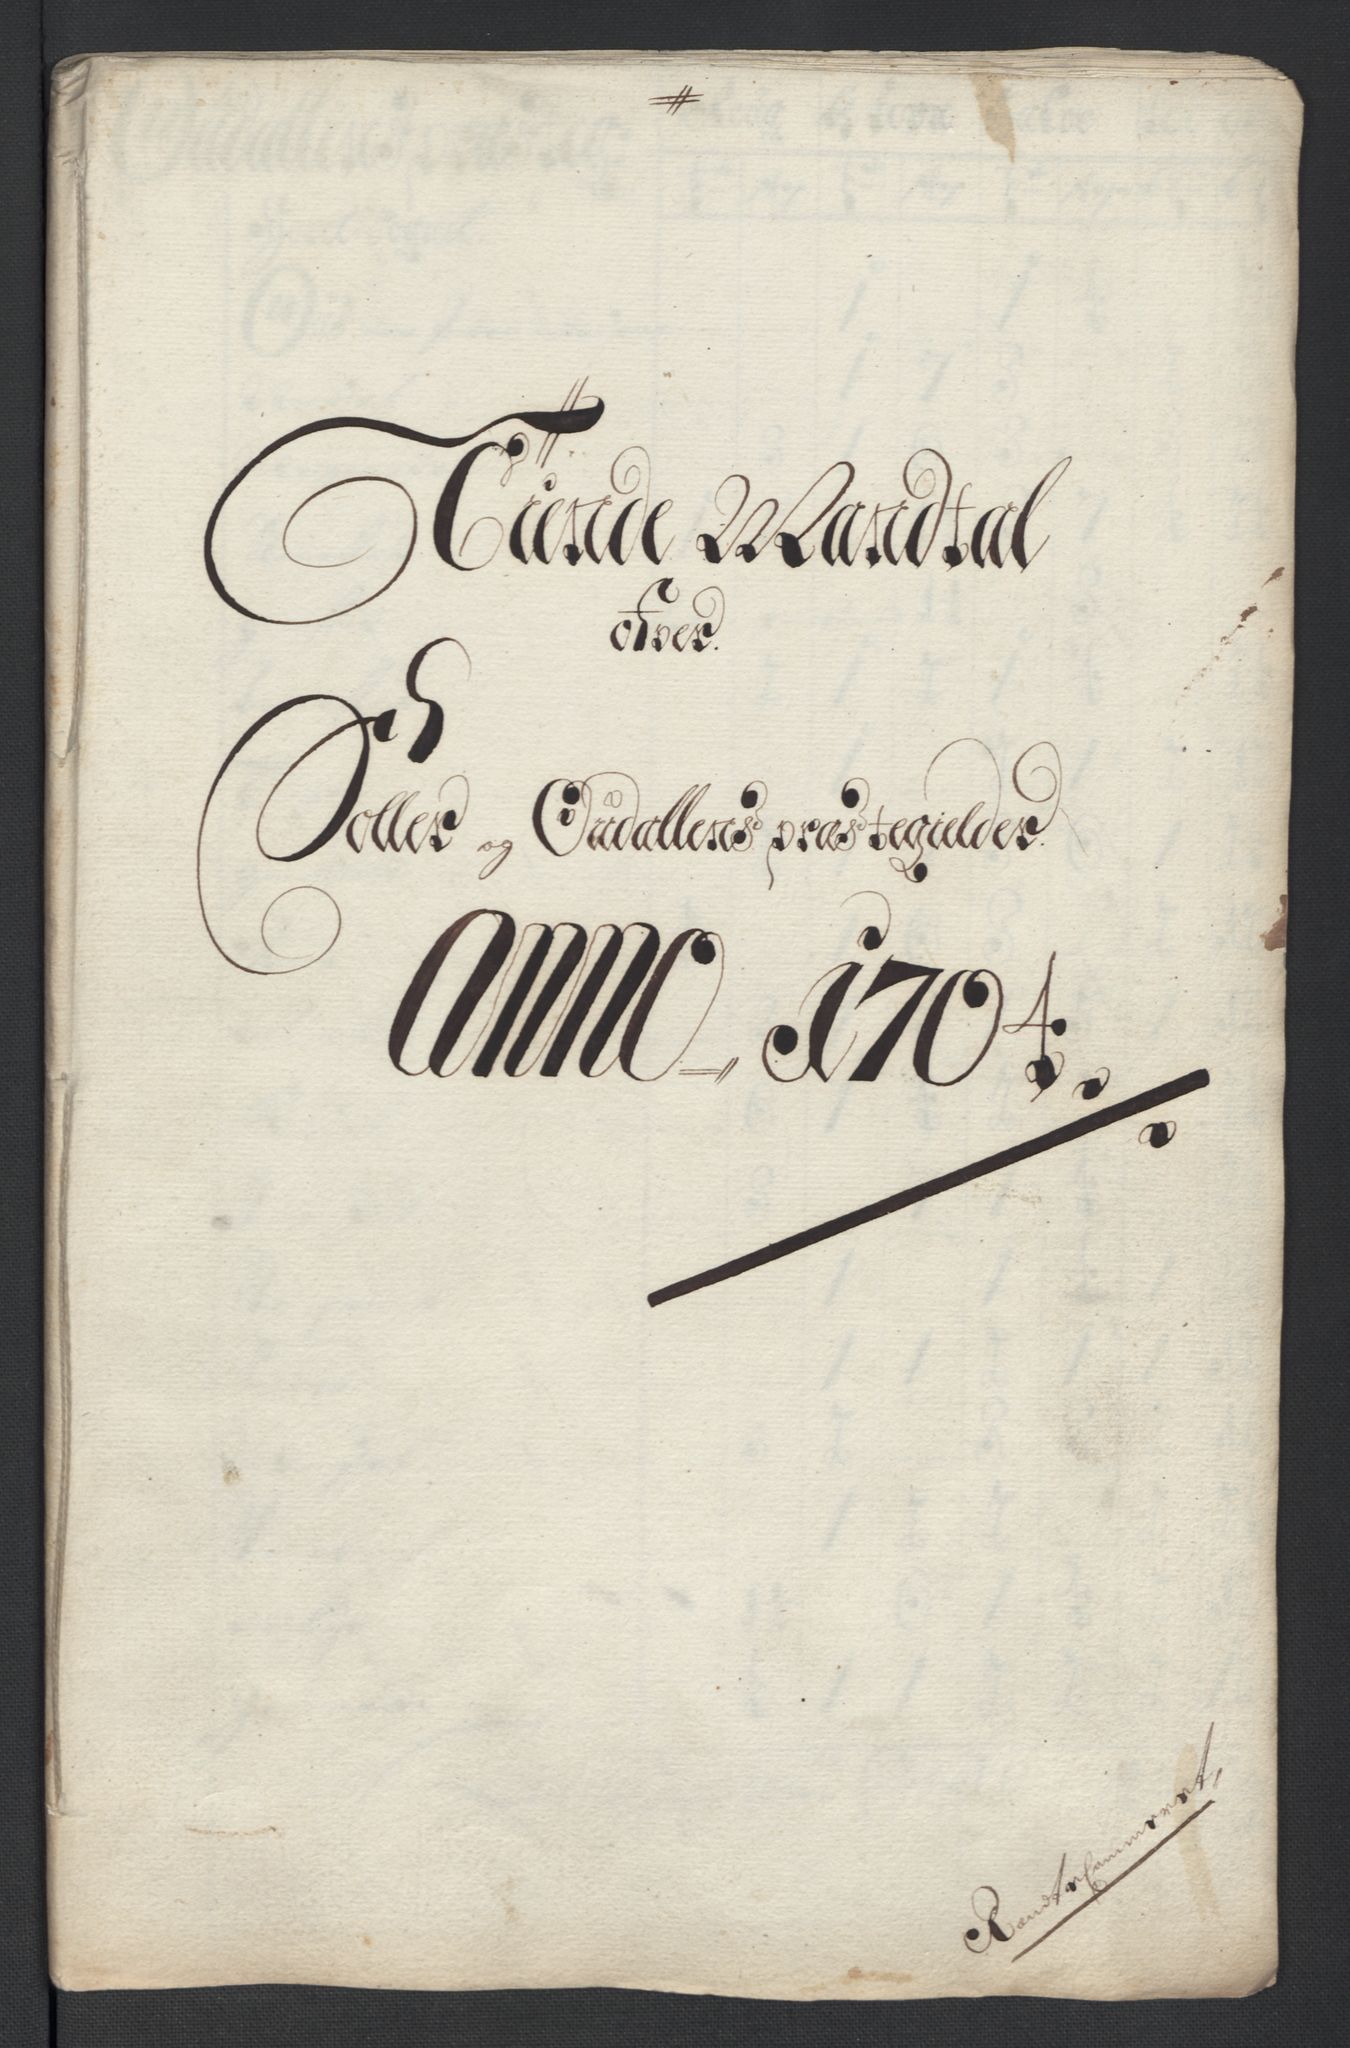 Tiende Mandtal
ofver
Soller og Oudallens præstegielder.
Anno 1704.
Rendtecammeret,